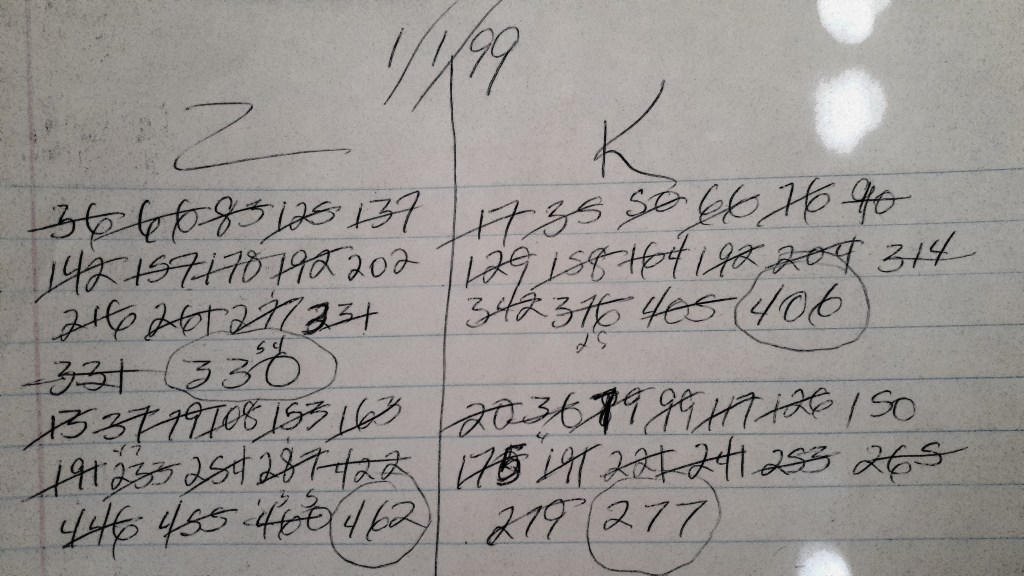 1/1/99
Z K
36 66 85 125 137 17 35 50 66 76 90
142 157 178 192 202 129 158 164 192 204 314
216 261 277 331 342 376 405 406
331 330
13 37 79 108 153 163 20 36 79 99 117 126 150
191 233 254 287 422 175 191 221 241 253 265
446 455 460 462 279 277